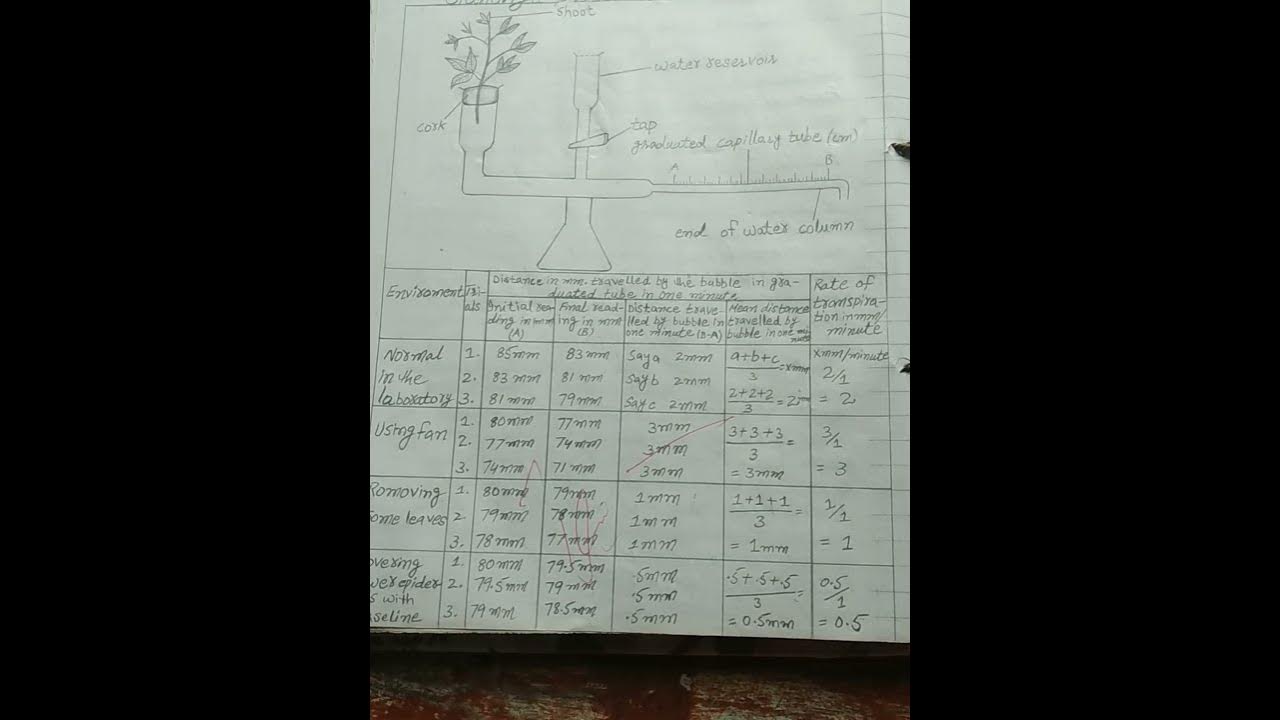 Shoot
water reservoir
cork
tap
graduated capillary tube (cm)
A B
end of water column
Enviroment Tri-als Distance in mm. travelled by the bubble in gra-duated tube in one minute Rate of transpira-tion in mm/minute
Initial rea-ding in mm (A) Final read-ing in mm (B) Distance trave-lled by bubble in one minute (B-A) Mean distance travelled by bubble in one minute
Normal in the laboratory
1. 85mm 83mm Say a 2mm a+b+c/3 = xmm xmm/minute
2. 83mm 81mm Say b 2mm 2/1
3. 81mm 79mm Say c 2mm 2+2+2/3 = 2mm = 2
Using fan
1. 80mm 77mm 3mm 3+3+3/3 = 3/1
2. 77mm 74mm 3mm
3. 74mm 71mm 3mm = 3mm = 3
Romoving
some leaves
1. 80mm 79mm 1mm 1+1+1/3 = 1/1
2. 79mm 78mm 1mm
3. 78mm 77mm 1mm = 1mm = 1
overing
with
1. 80mm 79.5mm .5mm .5+.5+.5/3 = 0.5/1
2. 79.5mm 79mm .5mm
3. 79mm 78.5mm .5mm = 0.5mm = 0.5